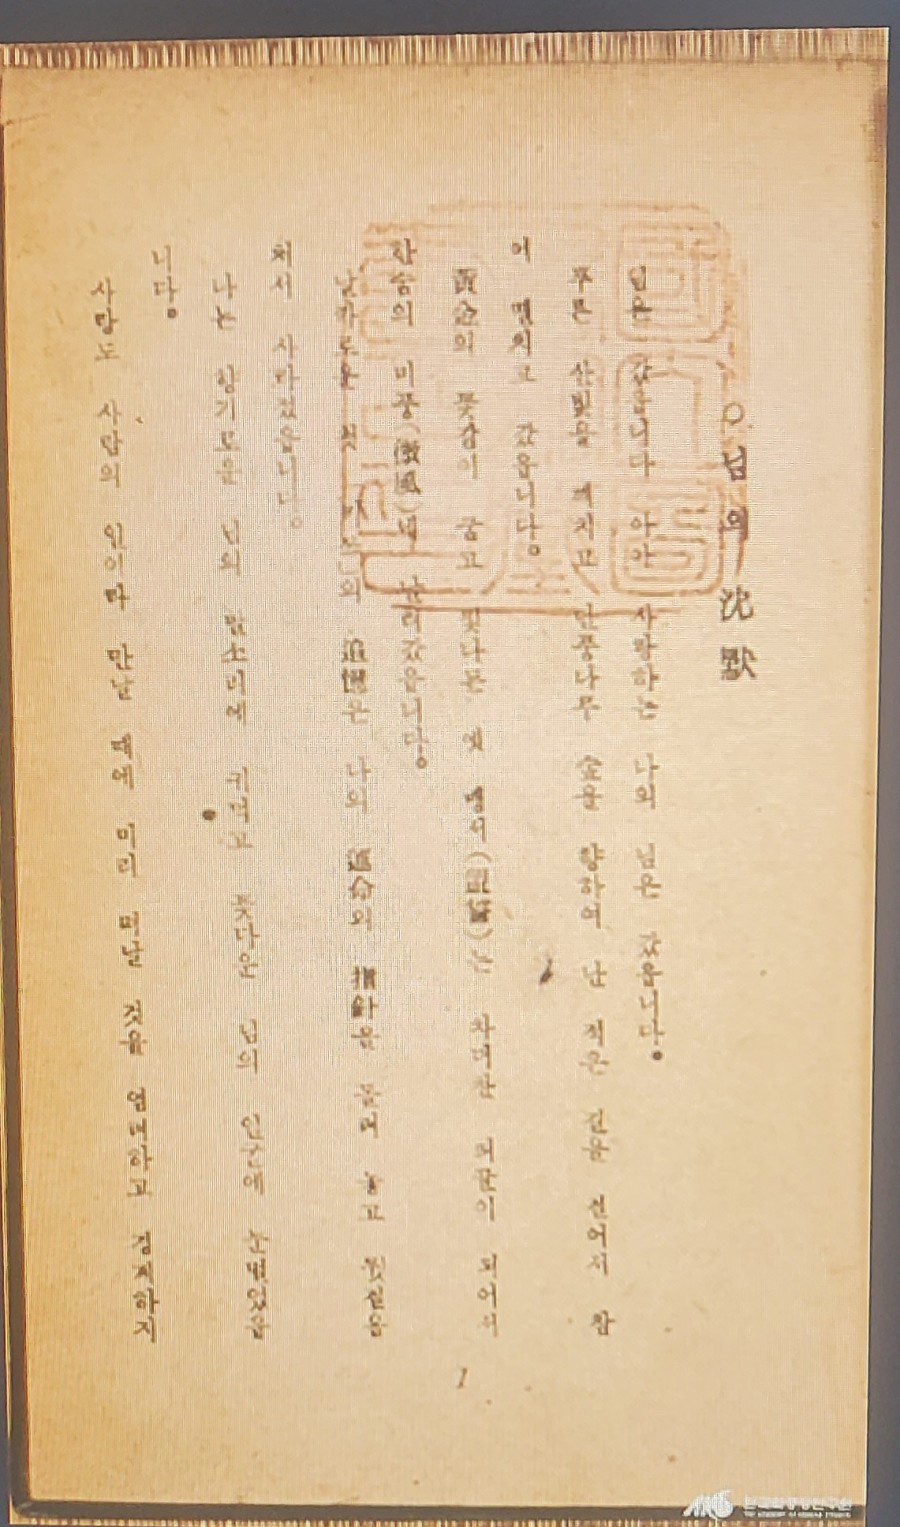 ○님의 沈默
님은 갔읍니다 아아 사랑하는 나의 님은 갔읍니다。
푸른 산빛을 깨치고 단풍나무 숲을 향하여 난 적은 길을 걸어서 참
어 떨치고 갔읍니다。
黃金의 꽃같이 굳고 빛나든 옛 맹서(盟誓)는 차디찬 띠끌이 되어서
한숨의 미풍(微風)에 날러갔읍니다。
날카로운 첫 의 追憶은 나의 運命의 指針을 돌려 놓고 뒷걸음
쳐서 사라졌읍니다。
나는 향기로운 님의 말소리에 귀먹고 꽃다운 님의 얼굴에 눈멀었읍
니다。
사랑도 사람의 일이라 만날 때에 미리 떠날 것을 염려하고 경계하지
1
AKS 한국학중앙연구원
THE ACADEMY OF KOREAN STUDIES